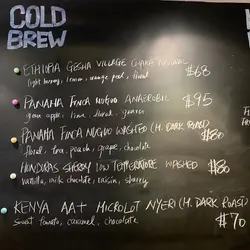 COLD
BREW
ETHIOPIA GESHA VILLAGE CHAKA NATURAL $68
light berry, lemon, orange peel, floral
PANAMA FINCA NUGUO ANAEROBIC $95
green apple, lime, floral, guava
PANAMA FINCA NUGUO WASHED (M. DARK ROAST) $80
floral, tea, peach, grape, chocolate
HONDURAS SHERRY LOW TEMPERATURE WASHED $80
vanilla, milk chocolate, raisin, sherry
KENYA AA+ MICROLOT NYERI (M. DARK ROAST) $70
sweet tomato, caramel, chocolate